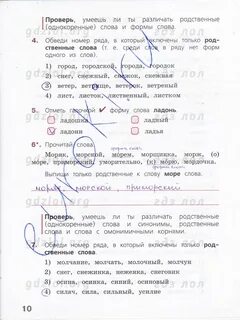 Проверь, умеешь ли ты различать родственные
(однокоренные) слова и формы слова.
4. Обведи номер ряда, в который включены только род-
ственные слова (т. е. среди слов в ряду нет форм
одного из слов).
1) город, городской, города, городок
2) снег, снежный, снежок, снежная
3) ветер, ветрище, ветерок, ветреный
4) лист, листок, лиственный, листком
5. Отметь галочкой ✓ формы слова ладонь.
ладошка
ладный
ладони
ладья
6*. Прочитай слова.
Моряк, морской, морем, морщинка, морж, (о)
море, приморский, уморительно, (к) морю, мордочка.
Выпиши только родственные к слову море слова.
моряк, морской, приморский
Проверь, умеешь ли ты различать родственные
(однокоренные) слова и синонимы, родственные
слова и слова с омонимичными корнями.
7. Обведи номер ряда, в который включены только род-
ственные слова.
1) молчание, молчать, молочный, молчун
2) снег, снежинка, неженка, снеговик
3) осина, осинка, синий, осиновый
4) силач, сила, сильный, усилие
10